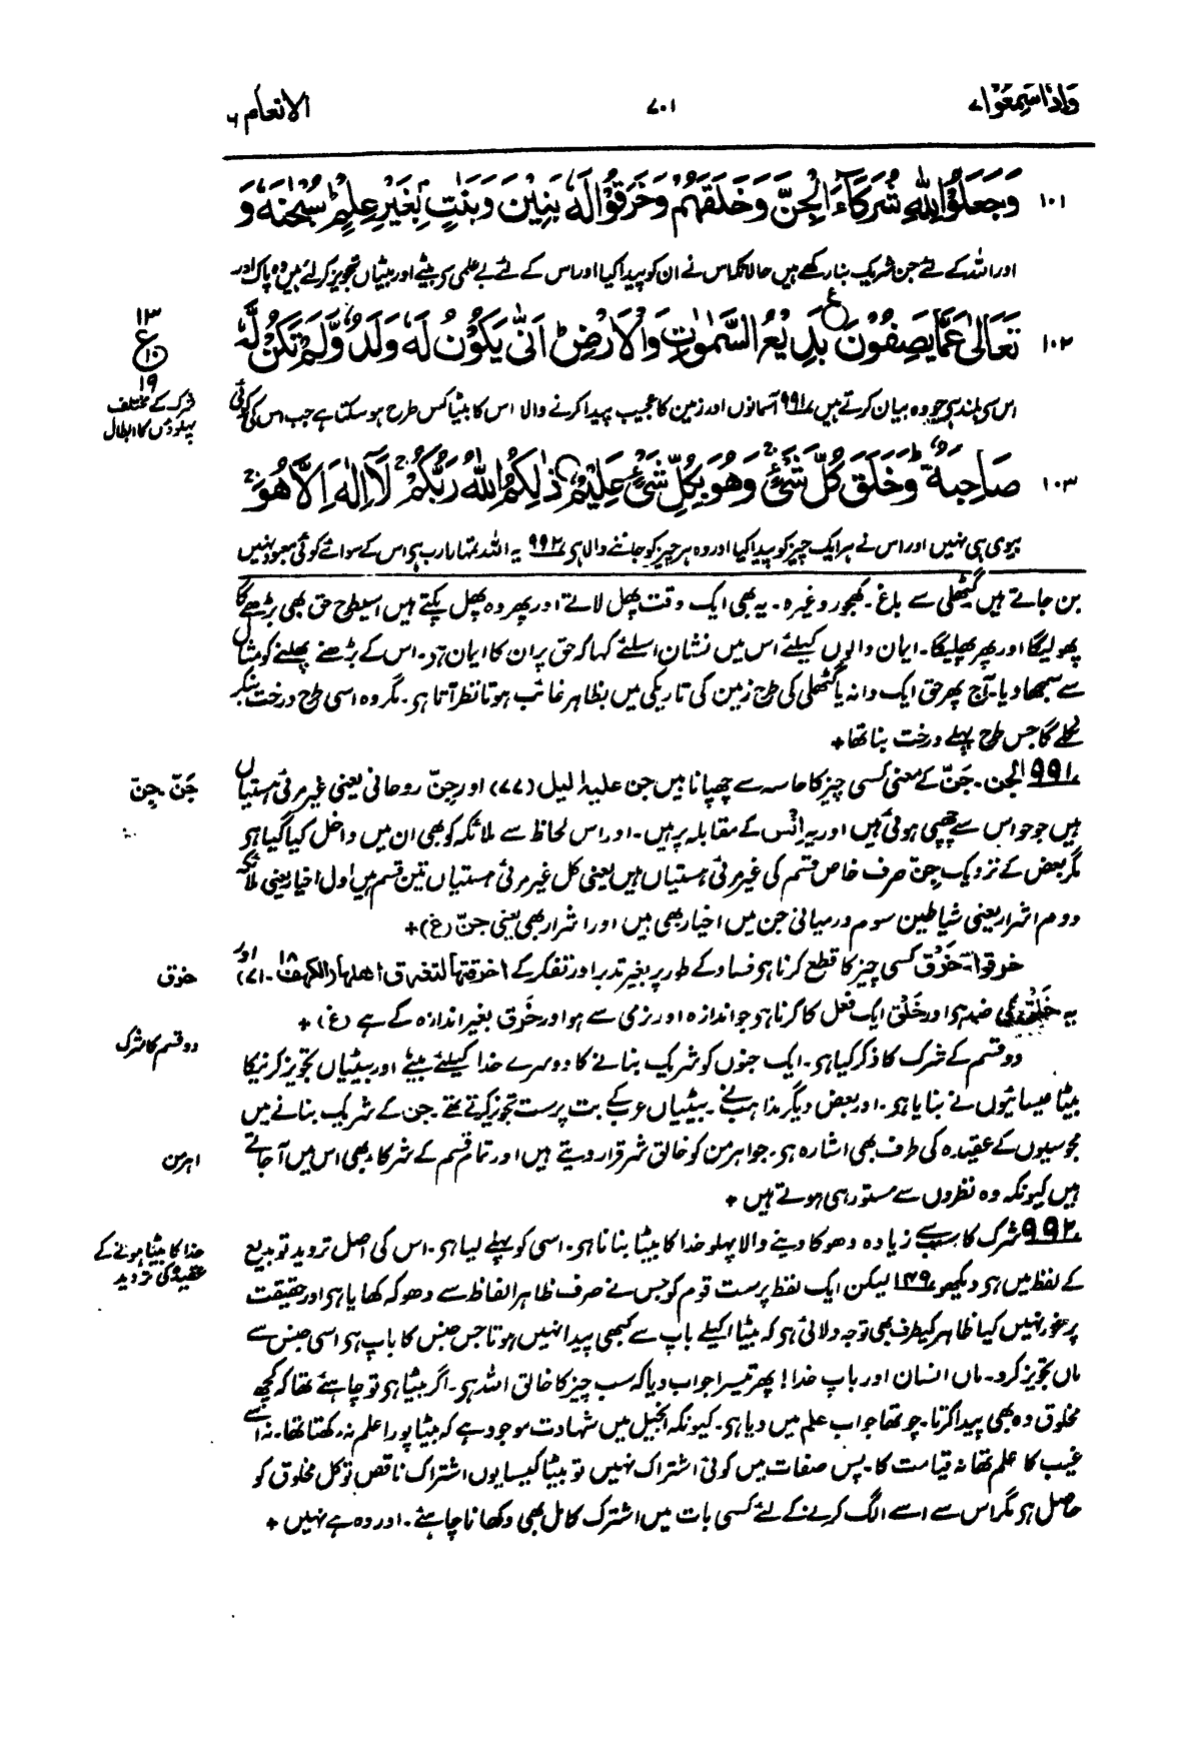 واذا سمعوا ۷
۷۰۱
الانعام ۶
۱۰۱ وَجَعَلُوْا لِلّٰهِ شُرَكَآءَ الْجِنَّ وَخَلَقَهُمْ وَخَرَقُوْا لَهٗ بَنِيْنَ وَبَنٰتٍۭ بِغَيْرِ عِلْمٍ ؕ سُبْحٰنَهٗ وَ
اور اللہ کے لئے جن شریک بنا رکھے ہیں حالانکہ اس نے ان کو پیدا کیا اور اس کے لئے بے علمی سے بیٹے اور بیٹیاں تجویز کرلئے ہیں وہ پاک اور
۱۰۲ تَعَالٰى عَمَّا يَصِفُوْنَ ع بَدِيْعُ السَّمٰوٰتِ وَالْاَرْضِ ؕ اَنّٰى يَكُوْنُ لَهٗ وَلَدٌ وَّلَمْ تَكُنْ لَّهٗ
۱۳
ع
۱۹
شرک کے مختلف
پہلوؤں کا ابطال
اس سے بلند ہی جو وہ بیان کرتے ہیں ۹۹۱ آسمانوں اور زمین کا عجیب پیدا کرنے والا اس کا بیٹا کس طرح ہو سکتا ہے جب اس کی کوئی
۱۰۳ صَاحِبَةٌ ؕ وَخَلَقَ كُلَّ شَيْءٍ ۚ وَهُوَ بِكُلِّ شَيْءٍ عَلِيْمٌ ذٰلِكُمُ اللّٰهُ رَبُّكُمْ ۚ لَآ اِلٰهَ اِلَّا هُوَ ۚ
بیوی ہی نہیں اور اس نے ہر ایک چیز کو پیدا کیا اور وہ ہر چیز کو جاننے والا ہی ۹۹۲ یہ اللہ تمہارا رب ہی اس کے سوائے کوئی معبود نہیں
بن جاتے ہیں گٹھلی سے باغ۔ کھجور وغیرہ۔ یہ بھی ایک وقت پھل لاتے اور پھر وہ پھل پکتے ہیں اسیطرح حق بھی بڑھے گا
پھولیگا اور پھر پھلیگا۔ ایمان والوں کیلئے اس میں نشان اسلئے کہا کہ حق پر ان کا ایمان ہو۔ اس کے بڑھنے پھلنے کو مثال
سے سمجھا دیا۔ آج پھر حق ایک دانہ یا گٹھلی کی طرح زمین کی تاریکی میں بظاہر غائب ہوتا نظر آتا ہی۔ مگر وہ اسی طرح درخت بنکر
نکلے گا جس طرح پہلے درخت بنا تھا+
۹۹۱ الجن۔ جَنّ کے معنی کسی چیز کا حاسہ سے چھپانا ہیں جن علیہ الیل (۷۷) اور جِنّ روحانی یعنی غیر مرئی ہستیاں
جَنّ۔ جِنّ
ہیں جو حواس سے چھپی ہوئی ہیں اور یہ اِنْس کے مقابلہ پر ہیں۔ اور اس لحاظ سے ملائکہ کو بھی ان میں داخل کیا گیا ہی
مگر بعض کے نزدیک جِنّ صرف خاص قسم کی غیر مرئی ہستیاں ہیں یعنی کل غیر مرئی ہستیاں تین قسم ہیں اول اخیار یعنی ملائکہ
دوم اشرار یعنی شیاطین سوم درمیانی جن میں اخیار بھی ہیں اور اشرار بھی یعنی جنّ (غ)+
خرقوا۔ خَرْق کسی چیز کا قطع کرنا ہی فساد کے طور پر بغیر تدبر اور تفکر کے اخرقتھا لتغرق اھلھا (الکہف ۱۸۔ ۷۱) اور
خرق
یہ خَلْق کی ضد ہی اور خَلْق ایک فعل کا کرنا ہی جو اندازہ اور نرمی سے ہو اور خَرق بغیر اندازہ کے ہے (غ)+
دو قسم کے شرک کا ذکر کیا ہی۔ ایک جنوں کو شریک بنانے کا دوسرے خدا کیلئے بیٹے اور بیٹیاں تجویز کرنیکا
دو قسم کا شرک
بیٹا عیسائیوں نے بنایا ہی۔ اور بعض دیگر مذاہب نے۔ بیٹیاں عرب کے بت پرست تجویز کرتے تھے۔ جن کے شریک بنانے میں
مجوسیوں کے عقیدہ کی طرف بھی اشارہ ہی۔ جو اہرمن کو خالق شر قرار دیتے ہیں اور تمام قسم کے شرکاء بھی اس میں آجاتے
اہرمن
ہیں کیونکہ وہ نظروں سے مستور ہی ہوتے ہیں+
۹۹۲ شرک کا سب سے زیادہ دھوکا دینے والا پہلو خدا کا بیٹا بنانا ہی۔ اسی کو پہلے لیا ہی۔ اس کی اصل تردید تو بدیع
خدا کا بیٹا ہونے کے
عقیدہ کی تردید
کے لفظ میں ہی دیکھو ۱۴۹ لیکن ایک لفظ پرست قوم کو جس نے صرف ظاہر الفاظ سے دھوکہ کھایا ہی اور حقیقت
پر غور نہیں کیا ظاہر کیطرف بھی توجہ دلائی ہی کہ بیٹا اکیلے باپ سے کبھی پیدا نہیں ہوتا جس جنس کا باپ ہی اسی جنس سے
ماں تجویز کرو۔ ماں انسان اور باپ خدا! پھر تیسرا جواب دیا کہ سب چیز کا خالق اللہ ہی۔ اگر بیٹا ہی تو چاہئے تھا کہ کچھ
مخلوق وہ بھی پیدا کرتا۔ چوتھا جواب علم میں دیا ہی۔ کیونکہ انجیل میں شہادت موجود ہے کہ بیٹا پورا علم نہ رکھتا تھا۔ نہ اسے
غیب کا علم تھا نہ قیامت کا۔ پس صفات میں کوئی اشتراک نہیں تو بیٹا کیسا یوں اشتراک ناقص تو کل مخلوق کو
حاصل ہی مگر اس سے اسے الگ کرنے کے لئے کسی بات میں اشتراک کامل بھی دکھانا چاہئے۔ اور وہ ہے نہیں+